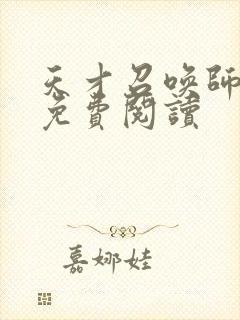 天才召喚師
免費閱讀
嘉娜娃